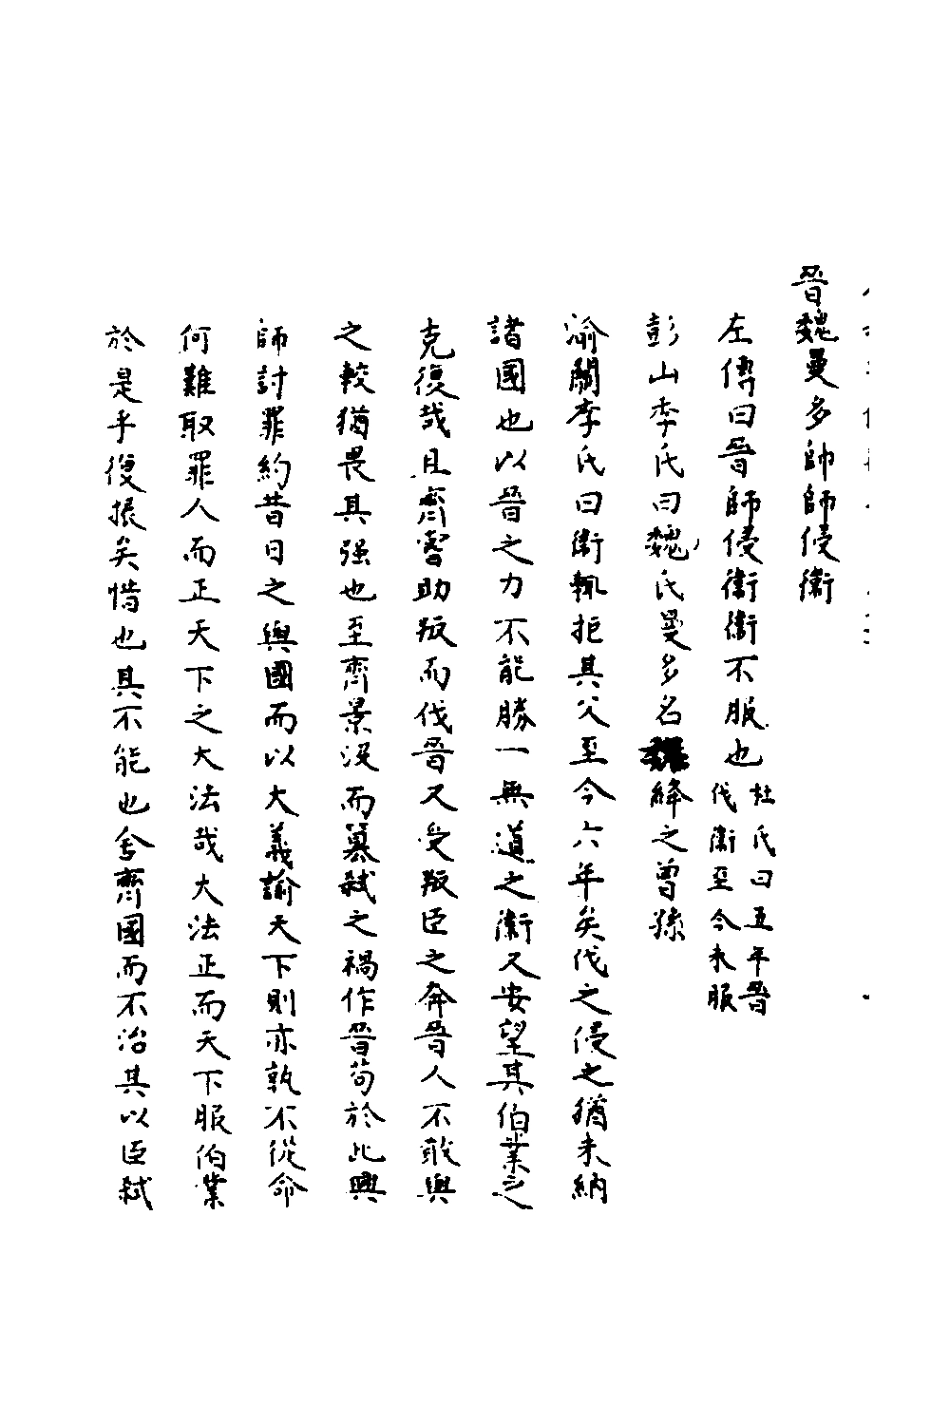 晉魏曼多帥師侵衛
左傳曰晉師侵衛衛不服也
杜氏曰五年晉
伐衛至今未服
彭山季氏曰魏氏曼多名絳之曾孫
渝關李氏曰衛輒拒其父至今六年矣伐之侵之猶未納
諸國也以晉之力不能勝一無道之衛又安望其伯業之
克復哉且齊嘗助叛而伐晉又受叛臣之奔晉人不敢與
之較猶畏其强也至齊景沒而篡弑之禍作晉茍於此興
師討罪約昔日之與國而以大義諭天下則亦孰不從命
何難取罪人而正天下之大法哉大法正而天下服伯業
於是乎復振矣惜也其不能也舍齊國而不治其以臣弑